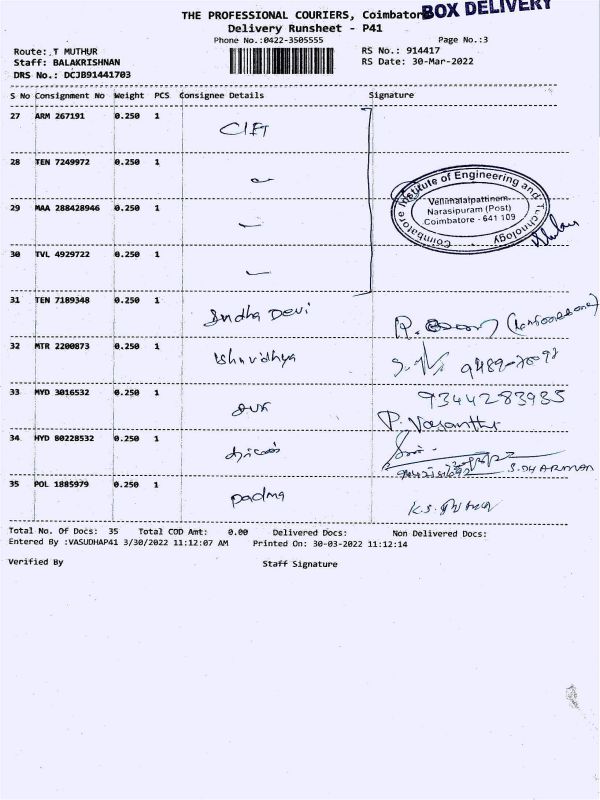 THE PROFESSIONAL COURIERS, Coimbator
BOX DELIVERY
Delivery Runsheet - P41
Phone No.:0422-3505555
Page No.:3
Route: T MUTHUR
RS No.: 914417
Staff: BALAKRISHNAN
RS Date: 30-Mar-2022
DRS No.: DCJB91441703
S No Consignment No Weight PCS Consignee Details Signature
27 ARM 267191 0.250 1 CIET
28 TEN 7249972 0.250 1
29 MAA 288428946 0.250 1
30 TVL 4929722 0.250 1
Coimbatore Institute of Engineering and Technology
Vellimalaipattinam
Narasipuram (Post)
Coimbatore - 641 109
31 TEN 7189348 0.250 1 Indha Devi
32 MTR 2200873 0.250 1 Ishvidhya
33 MYD 3016532 0.250 1 9344283935
P. Vasantha
34 HYD 80228532 0.250 1 S.DHARMAN
35 POL 1885979 0.250 1 padma K.S.
Total No. Of Docs: 35 Total COD Amt: 0.00 Delivered Docs: Non Delivered Docs:
Entered By :VASUDHAP41 3/30/2022 11:12:07 AM Printed On: 30-03-2022 11:12:14
Verified By Staff Signature